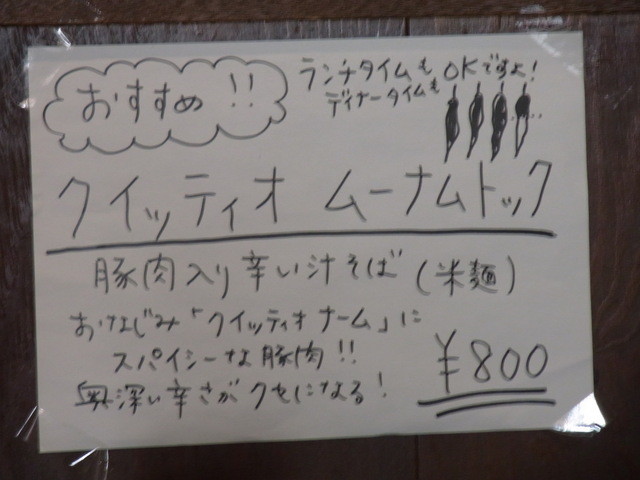 おすすめ!!
ランチタイムも OKですよ!
ディナータイムも
クイッティオ ムーナムトック
豚肉入り辛い汁そば(米麺)
おなじみ「クイッティオナーム」に
スパイシーな豚肉!!
奥深い辛さがクセになる!
¥800